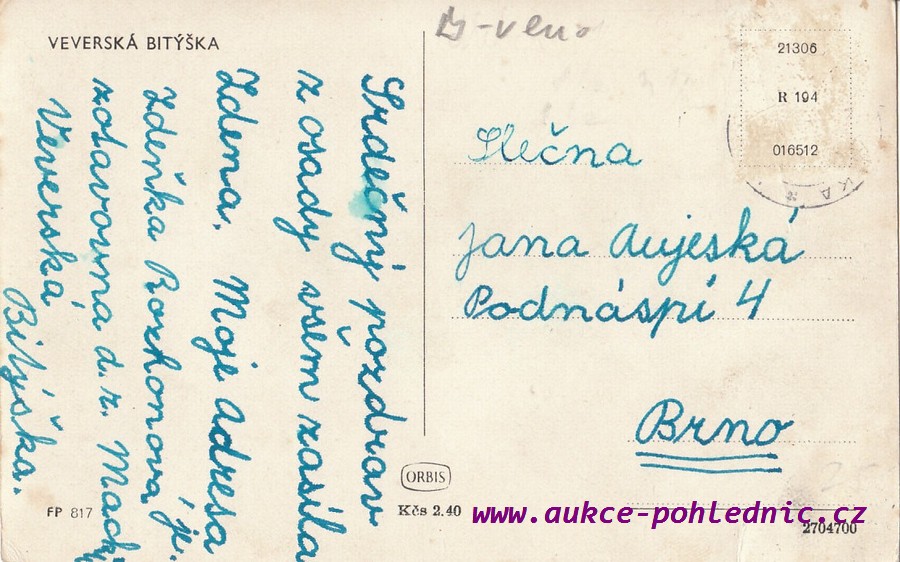 VEVERSKÁ BITÝŠKA
Srdečný pozdrav
z osady všem zasíla
Zdena. Moje Adresa
Zdeňka Rozkonová
zotavovná d. z. Mack
Veverská
Bitýška.
FP 817
ORBIS
Kčs 2.40
21306
R 194
016512
KA *
Slečna
Jana Aujeská
Podnáspí 4
Brno
www.aukce-pohlednic.cz
2704700